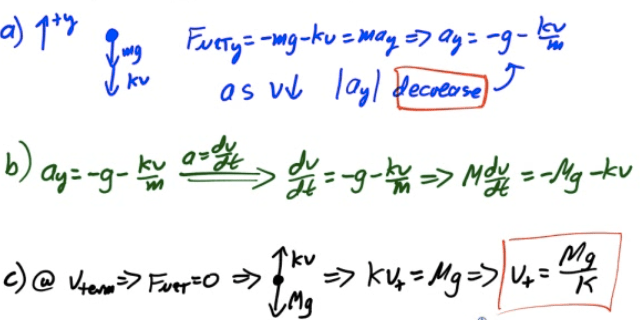 a) ↑+y
mg
kv
F_NETy = -mg - kv = ma_y ⇒ a_y = -g - kv/m
as v↓ |a_y| decrease
b) a_y = -g - kv/m a=dv/dt ⇒ dv/dt = -g - kv/m ⇒ M dv/dt = -Mg - kv
c) @ v_term ⇒ F_NET = 0 ⇒ ↑kv ↓Mg ⇒ kv_t = Mg ⇒ v_t = Mg/K